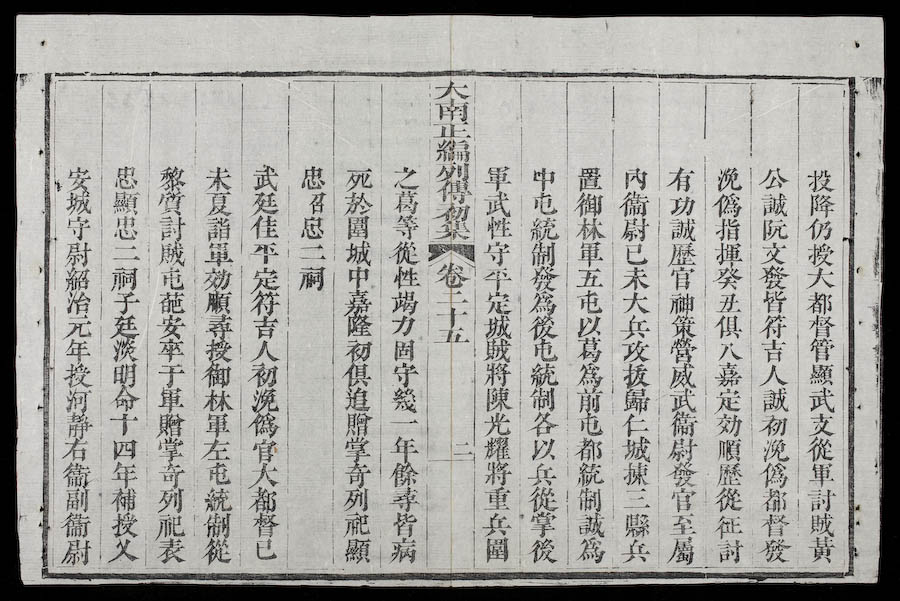 投降仍授大都督管顯武支從軍討賊黃
公誠阮文發皆符吉人誠初浼僞都督發
浼僞指揮癸丑俱入嘉定効順歷從征討
有功誠歷官神策營威武衞尉發官至屬
內衞尉己未大兵攻拔歸仁城揀三縣兵
置御林軍五屯以葛爲前屯都統制誠爲
中屯統制發爲後屯統制各以兵從掌後
軍武性守平定城賊將陳光耀將重兵圍
大南正編列傳初集 卷二十五 二
之葛等從性竭力固守幾一年餘尋皆病
死於圍城中嘉隆初俱追贈掌奇列祀顯
忠召忠二祠
武廷佳平定符吉人初浼僞官大都督己
未夏詣軍効順尋授御林軍左屯統制從
黎質討賊屯葩安卒于軍贈掌奇列祀表
忠顯忠二祠子廷淡明命十四年補授乂
安城守尉紹治元年授河靜右衞副衞尉